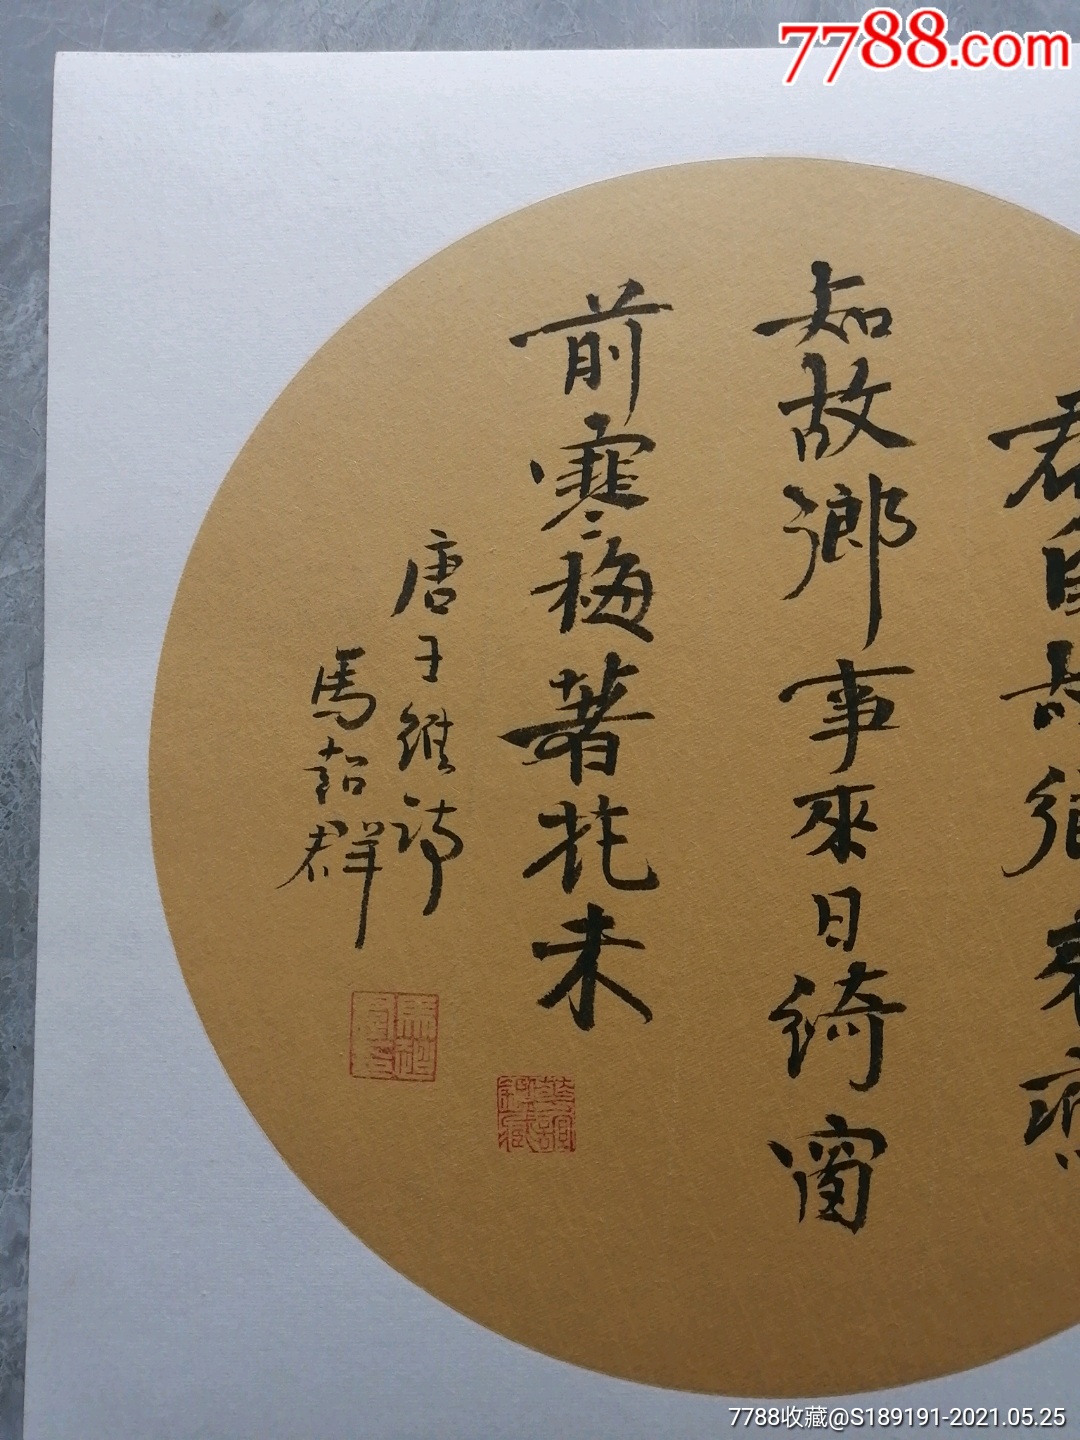 7788.com
君自故鄉來應
知故鄉事來日綺窗
前寒梅著花未
唐王維詩
馬超群
7788收藏@S189191-2021.05.25